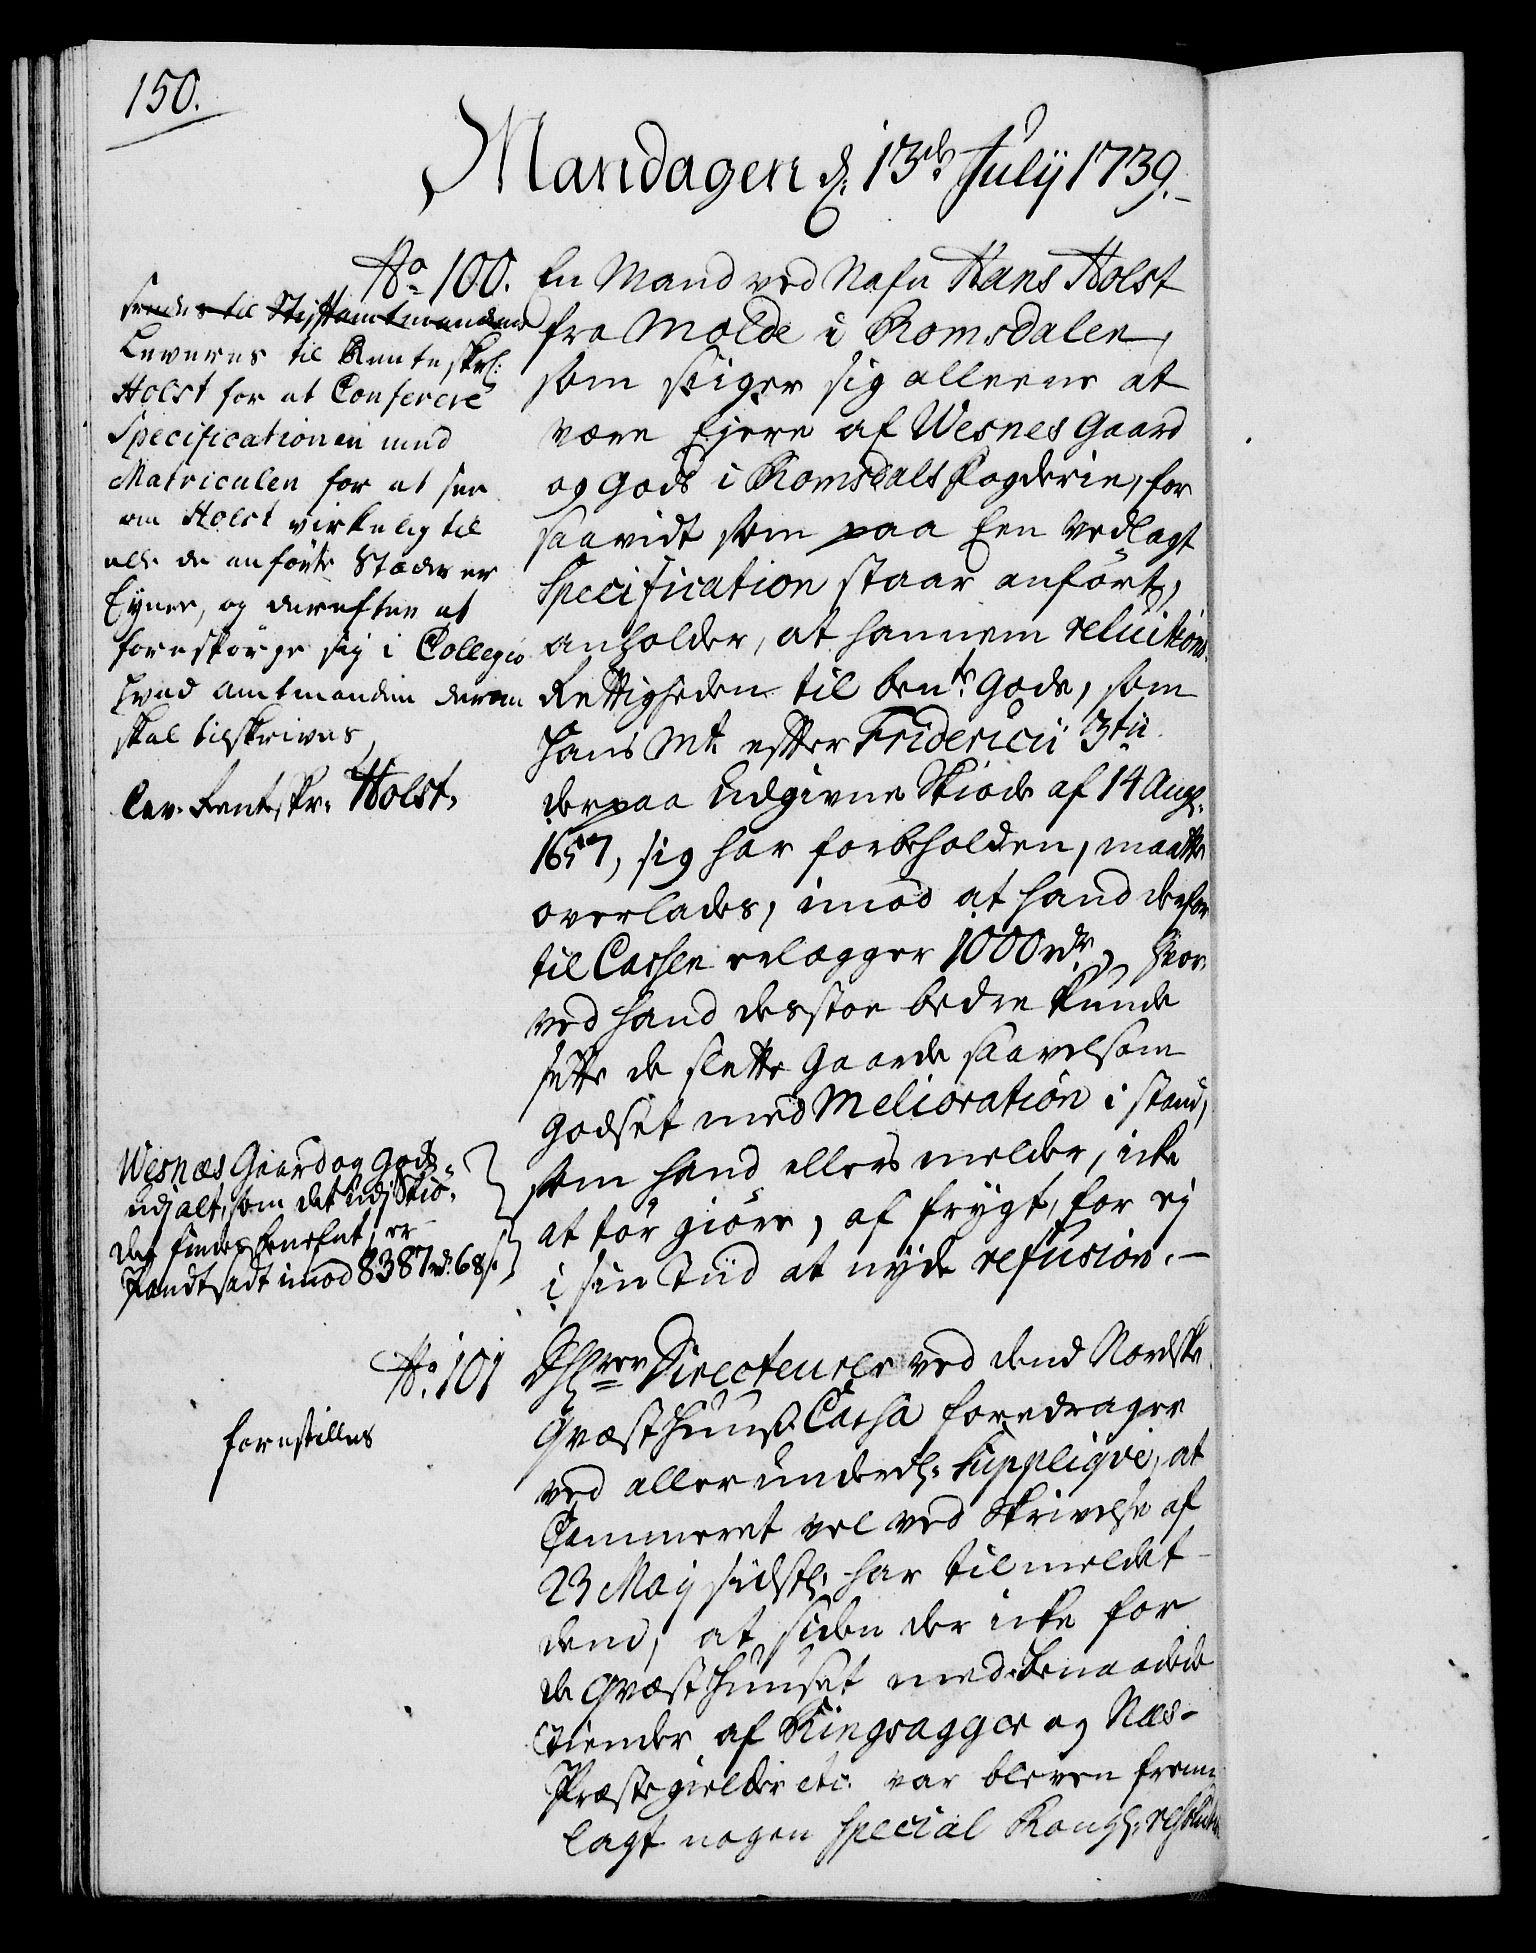 150.
Mandagen d. 13de Julij 1739.
No 100.
sendes til Stiftamtmanden
Leveres til Renteskr:
Holst for at Conferere
Specificationen med
Matriculen for at see
om Holst virkelig til
alle de anförte Stæder er
Eyer, og derefter at
forespörge sig i Collegio
hvad amtmanden derom
skal tilskrives,
Lev. Renteskr. Holst.
En Mand ved Nafn Hans Holst
fra Molde i Romsdalen,
som siiger sig alleene at
være Ejere af Wesnes Gaard
og Gods i Romsdals Fogderie, for
saavidt som paa Een vedlagt
Specification staar anfört,
anholder, at hannem reluitions
Rettigheden til bente Gods, som
Hans Mt. efter Friderici 3tii
derpaa Udgivne Skiöde af 14 Aug.
1657, sig har forbeholden, maatte
overlades, imod at hand derfor
til Cassen erlægger 1000 rdr, hvor-
ved hand desstoe bedre kunde
sette de slette Gaarde saavelsom
Godset med Melioration i stand,
som hand ellers melder, icke
at tör giöre, af frygt, for ej
i sin Tiid at nyde refusion.
Wesnæs Gaard og Gods
udj alt, som det udj Skiö-
det findes benefnt, er
Pandtsadt imod 8387 rd: 68 s.
No. 101
forestilles
Directeurer ved dend Nordske
Qvæsthuus Cassa foredrager
ved allerunderd: Suppliqve, at
Cammeret vel ved Skrivelse af
23 Maij sidstl: har tilmeldet
dem, at siden der icke for
de Qvæsthuuset med benaadede
Tiender af Ringsagger og Næs-
Præstegielder etc. var bleven frem-
lagt nogen special Kongl: resolution